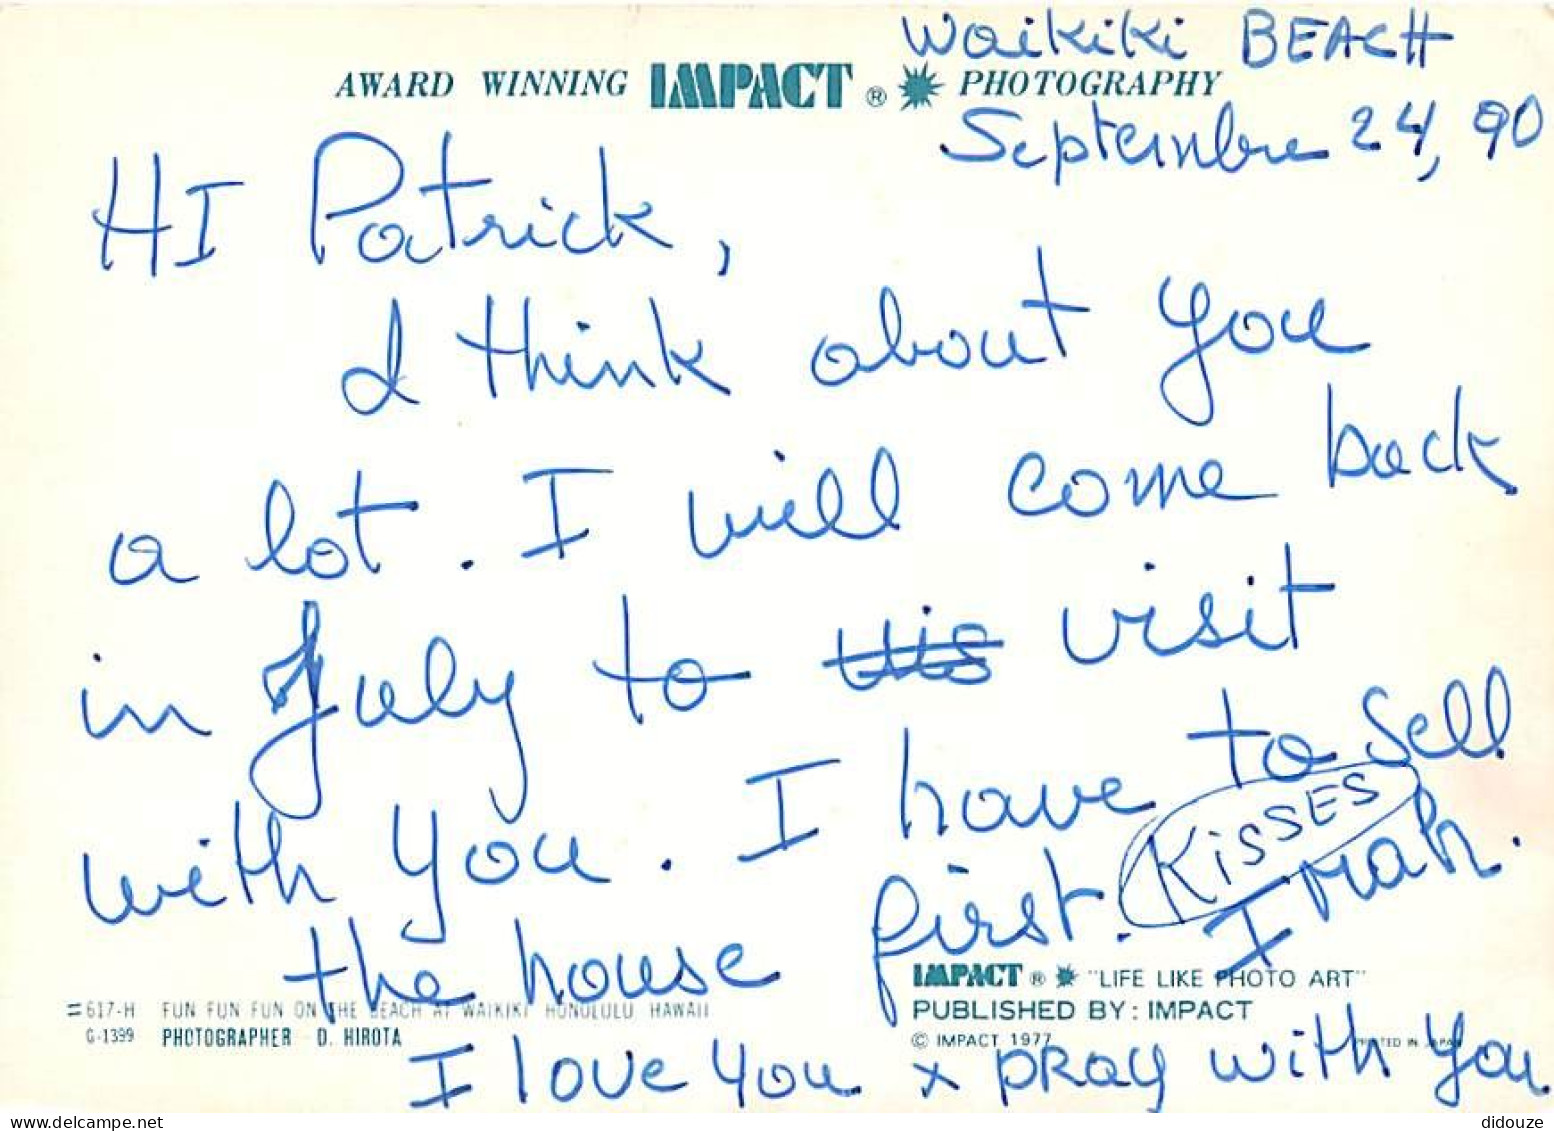 Waikiki BEACH
AWARD WINNING IMPACT ® PHOTOGRAPHY
Septembre 24, 90
HI Patrick,
I think about you
a lot. I will come back
in July to vis visit
with you. I have to sell
the house first. KisSES
IMaR.
IMPACT ® "LIFE LIKE PHOTO ART"
617-H FUN FUN FUN ON THE BEACH AT WAIKIKI HONOLULU HAWAII
PUBLISHED BY: IMPACT
G-1399 PHOTOGRAPHER D. HIROTA
© IMPACT 1977 PRINTED IN JAPAN
I love you x pRay with you
didouze